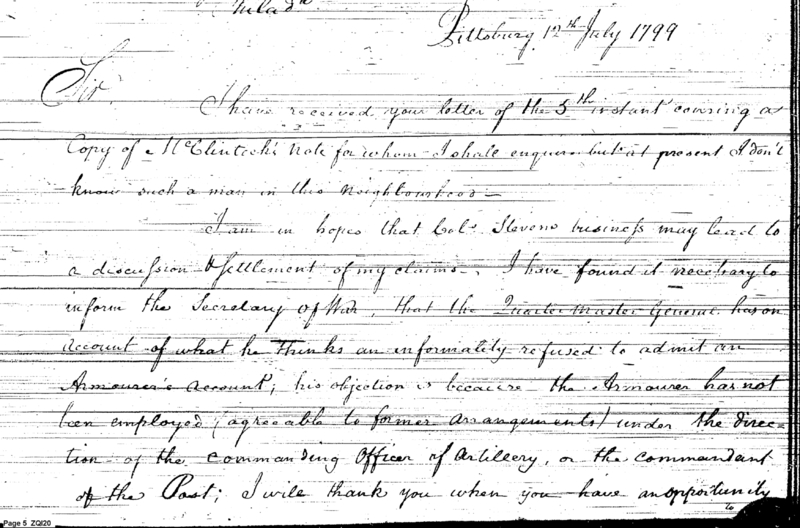 Philadᵃ
Pittsburg 12th July 1799
Sir
I have received your letter of the 5th instant covering a
Copy of a McClintock's Note for whom I shall enquire but at present I don't
know such a man in this Neighbourhood —
I am in hopes that Colo. Stevens business may lead to
a discussion & settlement of my claims. I have found it necessary to
inform the Secretary of War, that the Quarter Master General has on
account of what he thinks an informality refused to admit an
Armourer's account; his objection is because the Armourer has not
been employed (agreeable to former arrangements) under the direc=
tion of the commanding Officer of Artillery, or the commandant
of the Post; I will thank you when you have an opportunity
to
Page 5 ZQI20